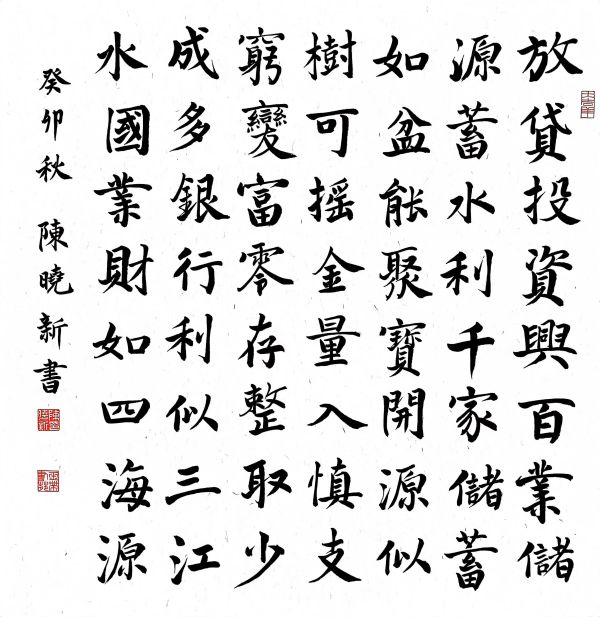 放貸投資興百業儲
源蓄水利千家儲蓄
如盆能聚寶開源似
樹可摇金量入慎支
窮變富零存整取少
成多銀行利似三江
水國業財如四海源
癸卯秋 陳曉新書